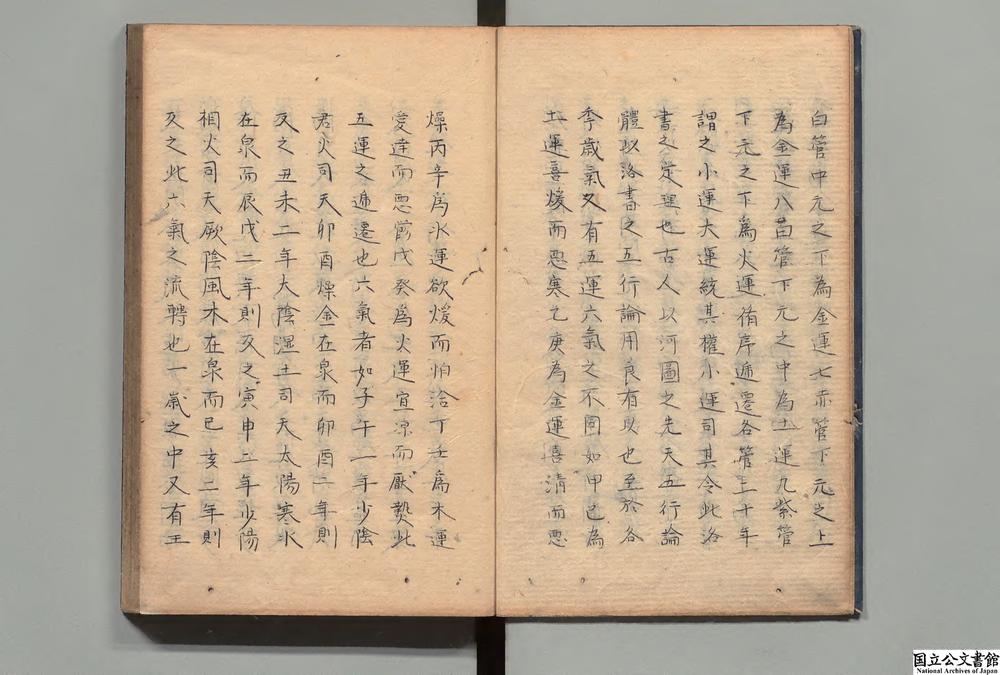 白管中元之下為金運七赤管下元之上
為金運八苗管下元之中為土運九紫管
下元之下為火運循序遞遷各管二十年
謂之小運大運統其權小運司其令此洛
書之定理也古人以河圖之先天五行論
體以洛書之五行論用良有以也至於各
季歲氣又有五運六氣之不同如甲己為
土運喜煖而惡寒乙庚為金運喜清而惡
燥丙辛為水運欲煖而怕冶丁壬為木運
愛達而惡鬱戊癸為火運宜涼而厭熱此
五運之遞遷也六氣者如子午二年少陰
君火司天卯酉燥金在泉而卯酉二年則
反之丑未二年太陰濕土司天太陽寒水
在泉而辰戌二年則反之寅申二年少陽
相火司天厥陰風木在泉而巳亥二年則
反之此六氣之流轉也一歲之中又有王
国立公文書館
National Archives of Japan